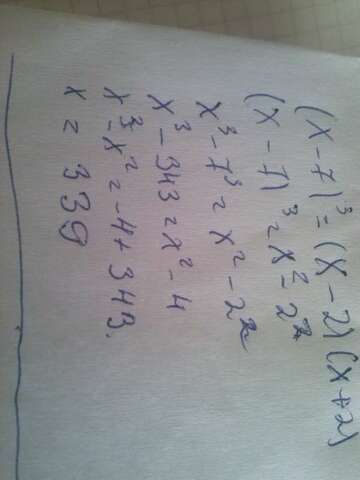 (x-7)³=(x-2)(x+2)
(x-7)³=x²-2²
x³-7³=x²-2²
x³-343=x²-4
x³-x²=-4+343.
x=339